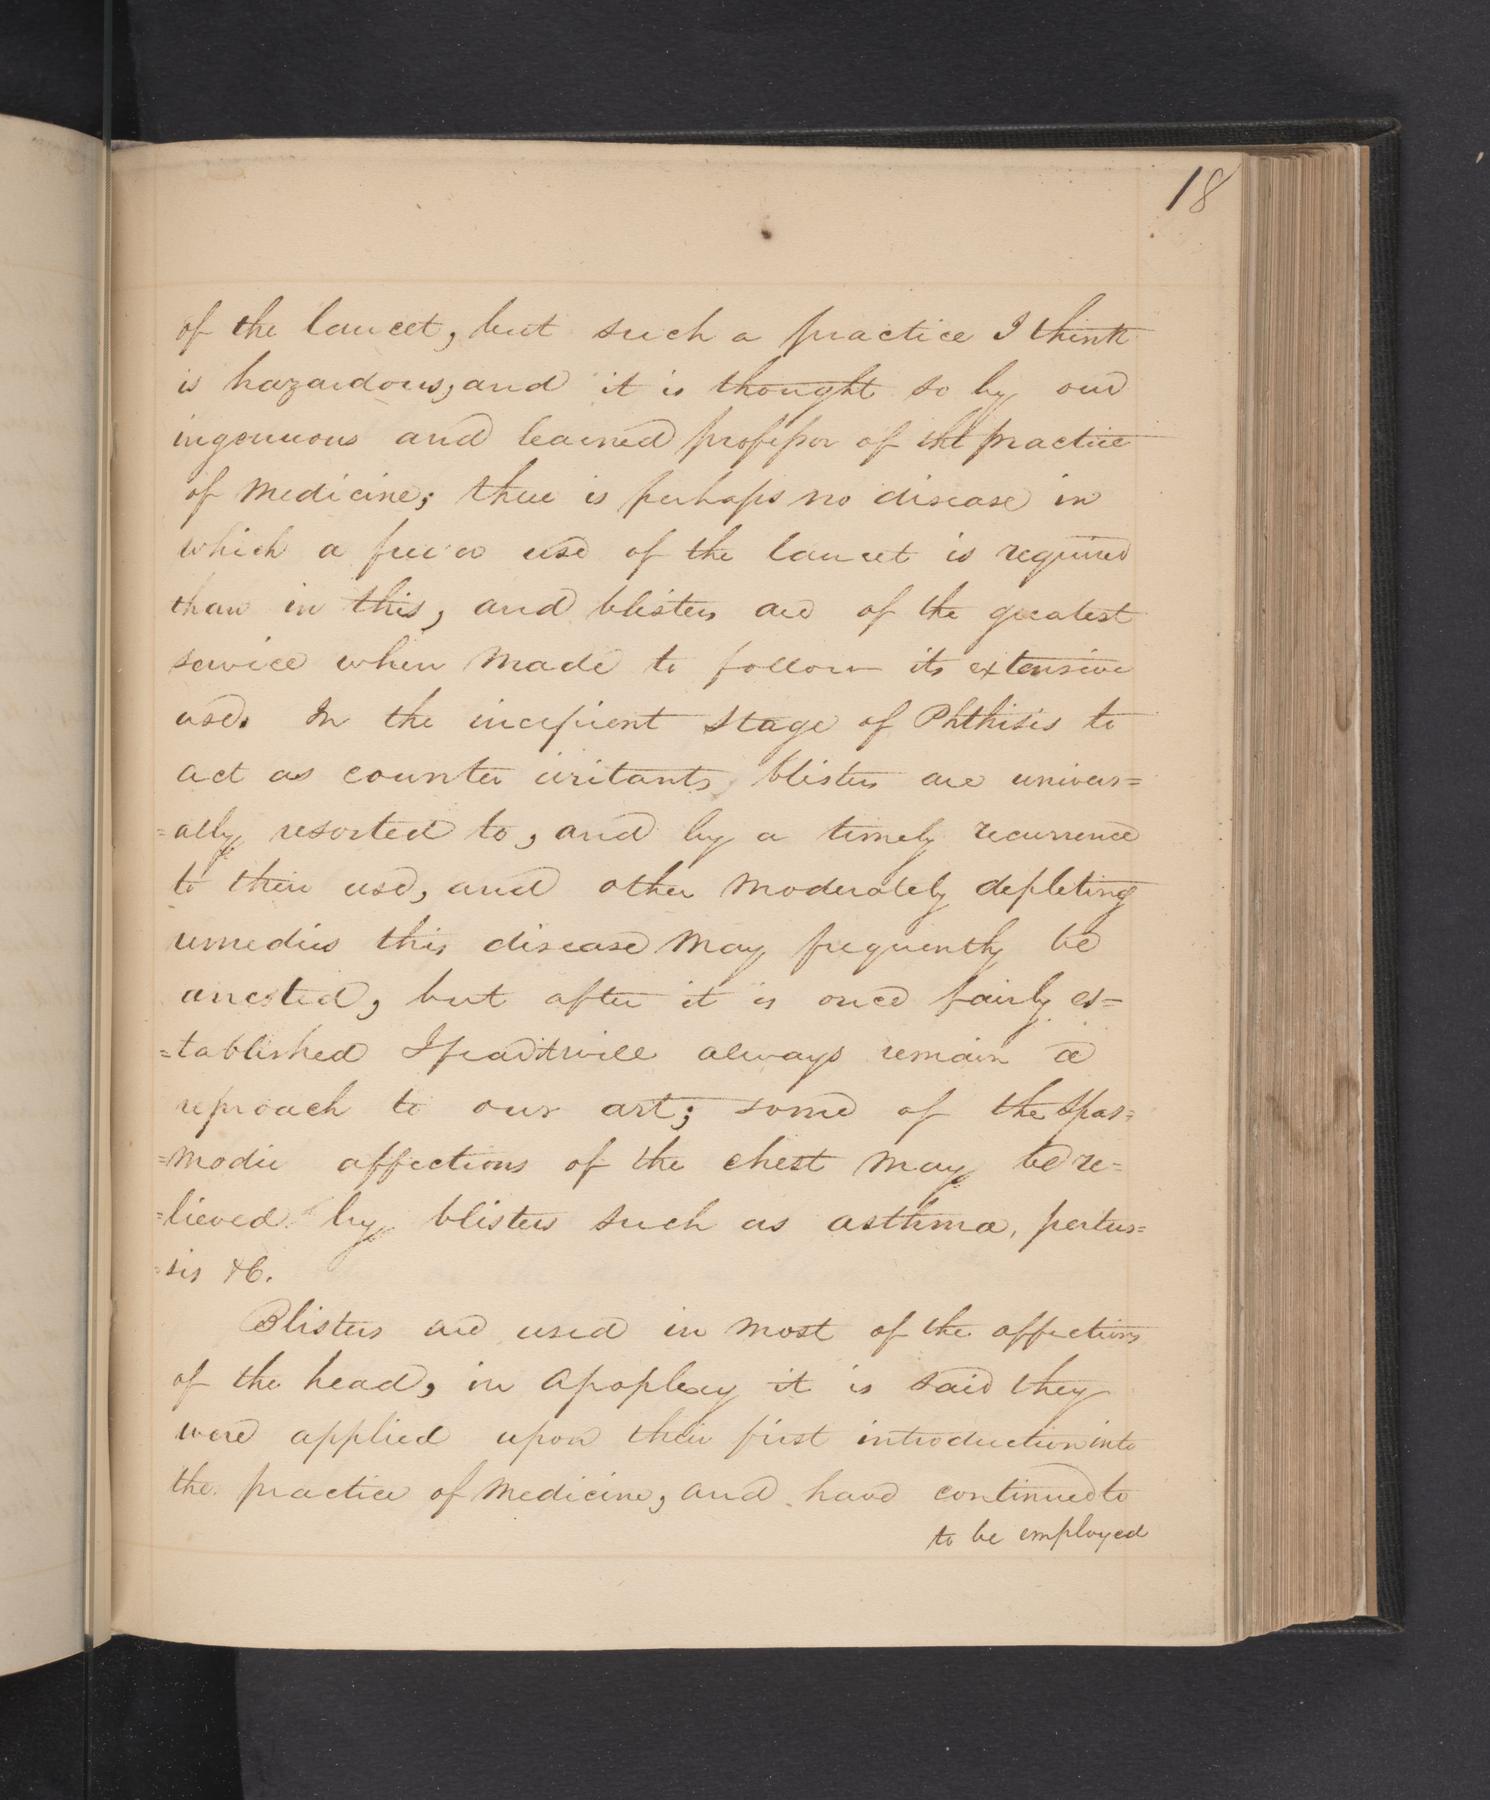 18
of the lancet, but such a practice I think
is hazardous, and it is thought so by our
ingenuous and learned professor of the practice
of Medicine; there is perhaps no disease in
which a freeer use of the lancet is required
than in this, and blisters are of the greatest
service when Made to follow its extensive
use. In the incipient stage of Phthisis to
act as counter irritants blisters are univers=
=ally resorted to, and by a timely recurrence
to their use, and other Moderately depleting
remedies this disease May frequently be
arrested, but after it is once fairly es=
=tablished I fear it will always remain a
reproach to our art; some of the Spas=
=modic affections of the chest May be re=
=lieved by blisters such as asthma, pertus=
=sis &c.
Blisters are used in Most of the affections
of the head, in Apoplexy it is said they
were applied upon their first introduction into
the practice of Medicine, and have continued to
to be employed